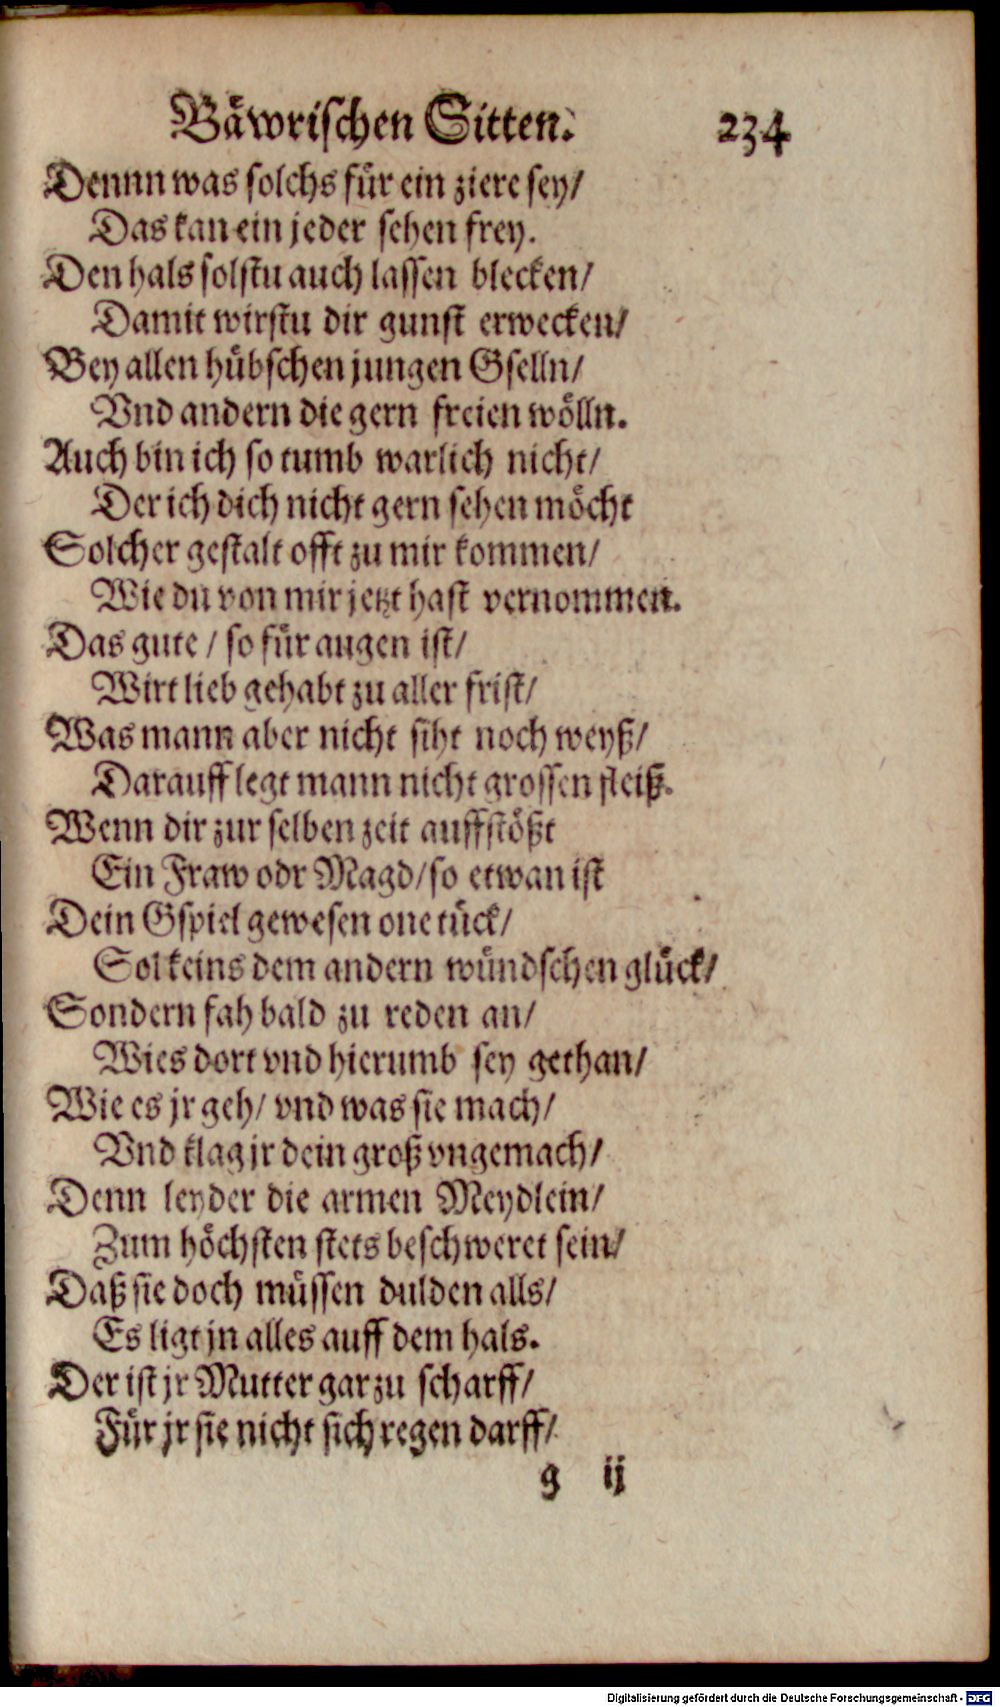 Bäwrischen Sitten. 234
Dennn was solchs für ein ziere sey/
Das kan ein jeder sehen frey.
Den hals solstu auch lassen blecken/
Damit wirstu dir gunst erwecken/
Bey allen hübschen jungen Gselln/
Vnd andern die gern freien wölln.
Auch bin ich so tumb warlich nicht/
Der ich dich nicht gern sehen möcht
Solcher gestalt offt zu mir kommen/
Wie du von mir jetzt hast vernommen.
Das gute / so für augen ist/
Wirt lieb gehabt zu aller frist/
Was mann aber nicht siht noch weyß/
Darauff legt mann nicht grossen fleiß.
Wenn dir zur selben zeit auffstößt
Ein Fraw odr Magd/ so etwan ist
Dein Gspiel gewesen one tück/
Sol keins dem andern wündschen glück/
Sondern fah bald zu reden an/
Wies dort vnd hierumb sey gethan/
Wie es jr geh/ vnd was sie mach/
Vnd klag jr dein groß vngemach/
Denn leyder die armen Meydlein/
Zum höchsten stets beschweret sein/
Daß sie doch müssen dulden alls/
Es ligt jn alles auff dem hals.
Der ist jr Mutter gar zu scharff/
Für jr sie nicht sich regen darff/
g ij
Digitalisierung gefördert durch die Deutsche Forschungsgemeinschaft - DFG